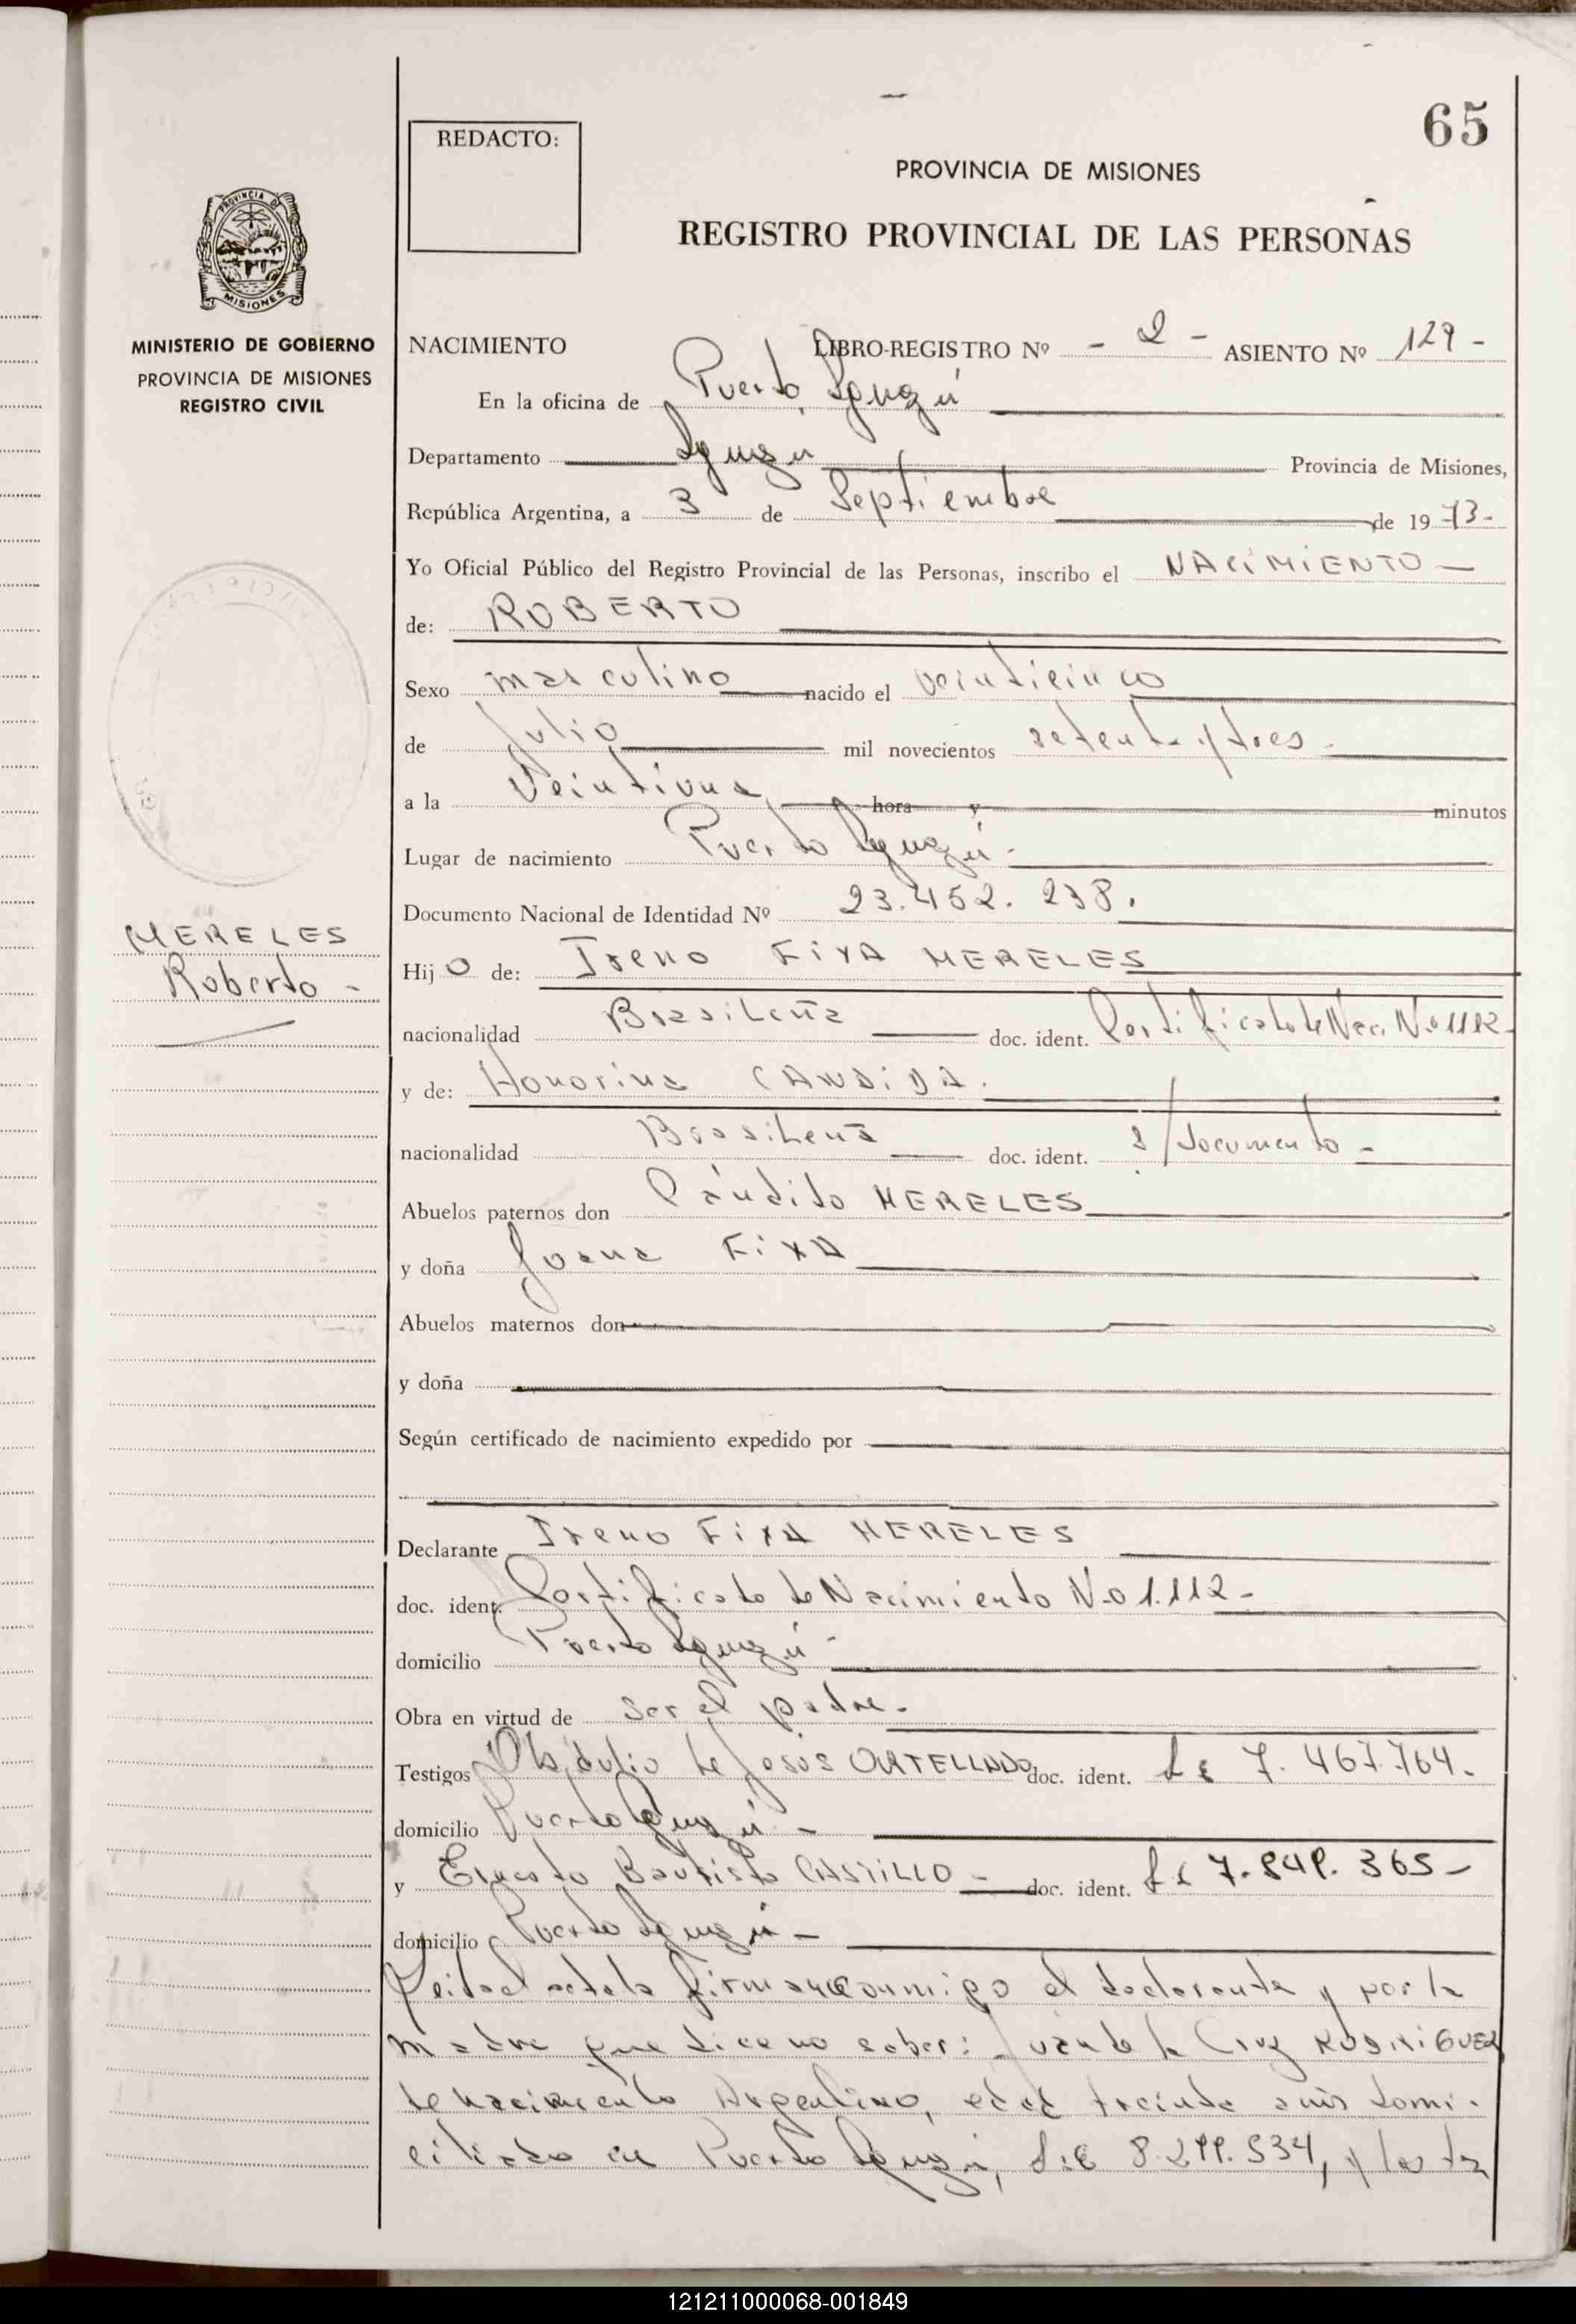 65
REDACTO:
PROVINCIA DE MISIONES
REGISTRO PROVINCIAL DE LAS PERSONAS
PROVINCIA DE
MISIONES
MINISTERIO DE GOBIERNO
PROVINCIA DE MISIONES
REGISTRO CIVIL
NACIMIENTO LIBRO-REGISTRO Nº - 2 - ASIENTO Nº 129 -
En la oficina de Puerto Iguazú
Departamento Iguazú Provincia de Misiones,
República Argentina, a 3 de Septiembre de 1973-
Yo Oficial Público del Registro Provincial de las Personas, inscribo el NACIMIENTO -
de: ROBERTO
Sexo masculino nacido el veinticinco
de Julio mil novecientos setenta y tres -
a la Veintiuna, hora y minutos
Lugar de nacimiento Puerto Iguazú -
Documento Nacional de Identidad Nº 23.452.238.
MERELES
Roberto -
Hijo de: Ireno FIXA MERELES
nacionalidad Brasileña doc. ident. Certificado de Nac. No 1112-
y de: Honorina CANDIDA.
nacionalidad Brasileña doc. ident. s/documento -
Abuelos paternos don Cándido MERELES
y doña Joana FIXA
Abuelos maternos don
y doña
Según certificado de nacimiento expedido por
Declarante Ireno FIXA MERELES
doc. ident. Certificado de Nacimiento No 1.112-
domicilio Puerto Iguazú -
Obra en virtud de ser el padre.
Testigos de Jesús ORTELLADO doc. ident. L E 7.467.764.
domicilio Puerto Iguazú -
y Ernesto Bautista CASTILLO - doc. ident. L E 7.849.365-
domicilio Puerto Iguazú -
Leida el acta la firman conmigo el declarante y por la
madre que dice no saber: Juan de la Cruz RODRIGUEZ
de nacimiento Argentino, edad treinta años domi-
ciliado en Puerto Iguazú, L.E 8.299.534, y los tes
121211000068-001849